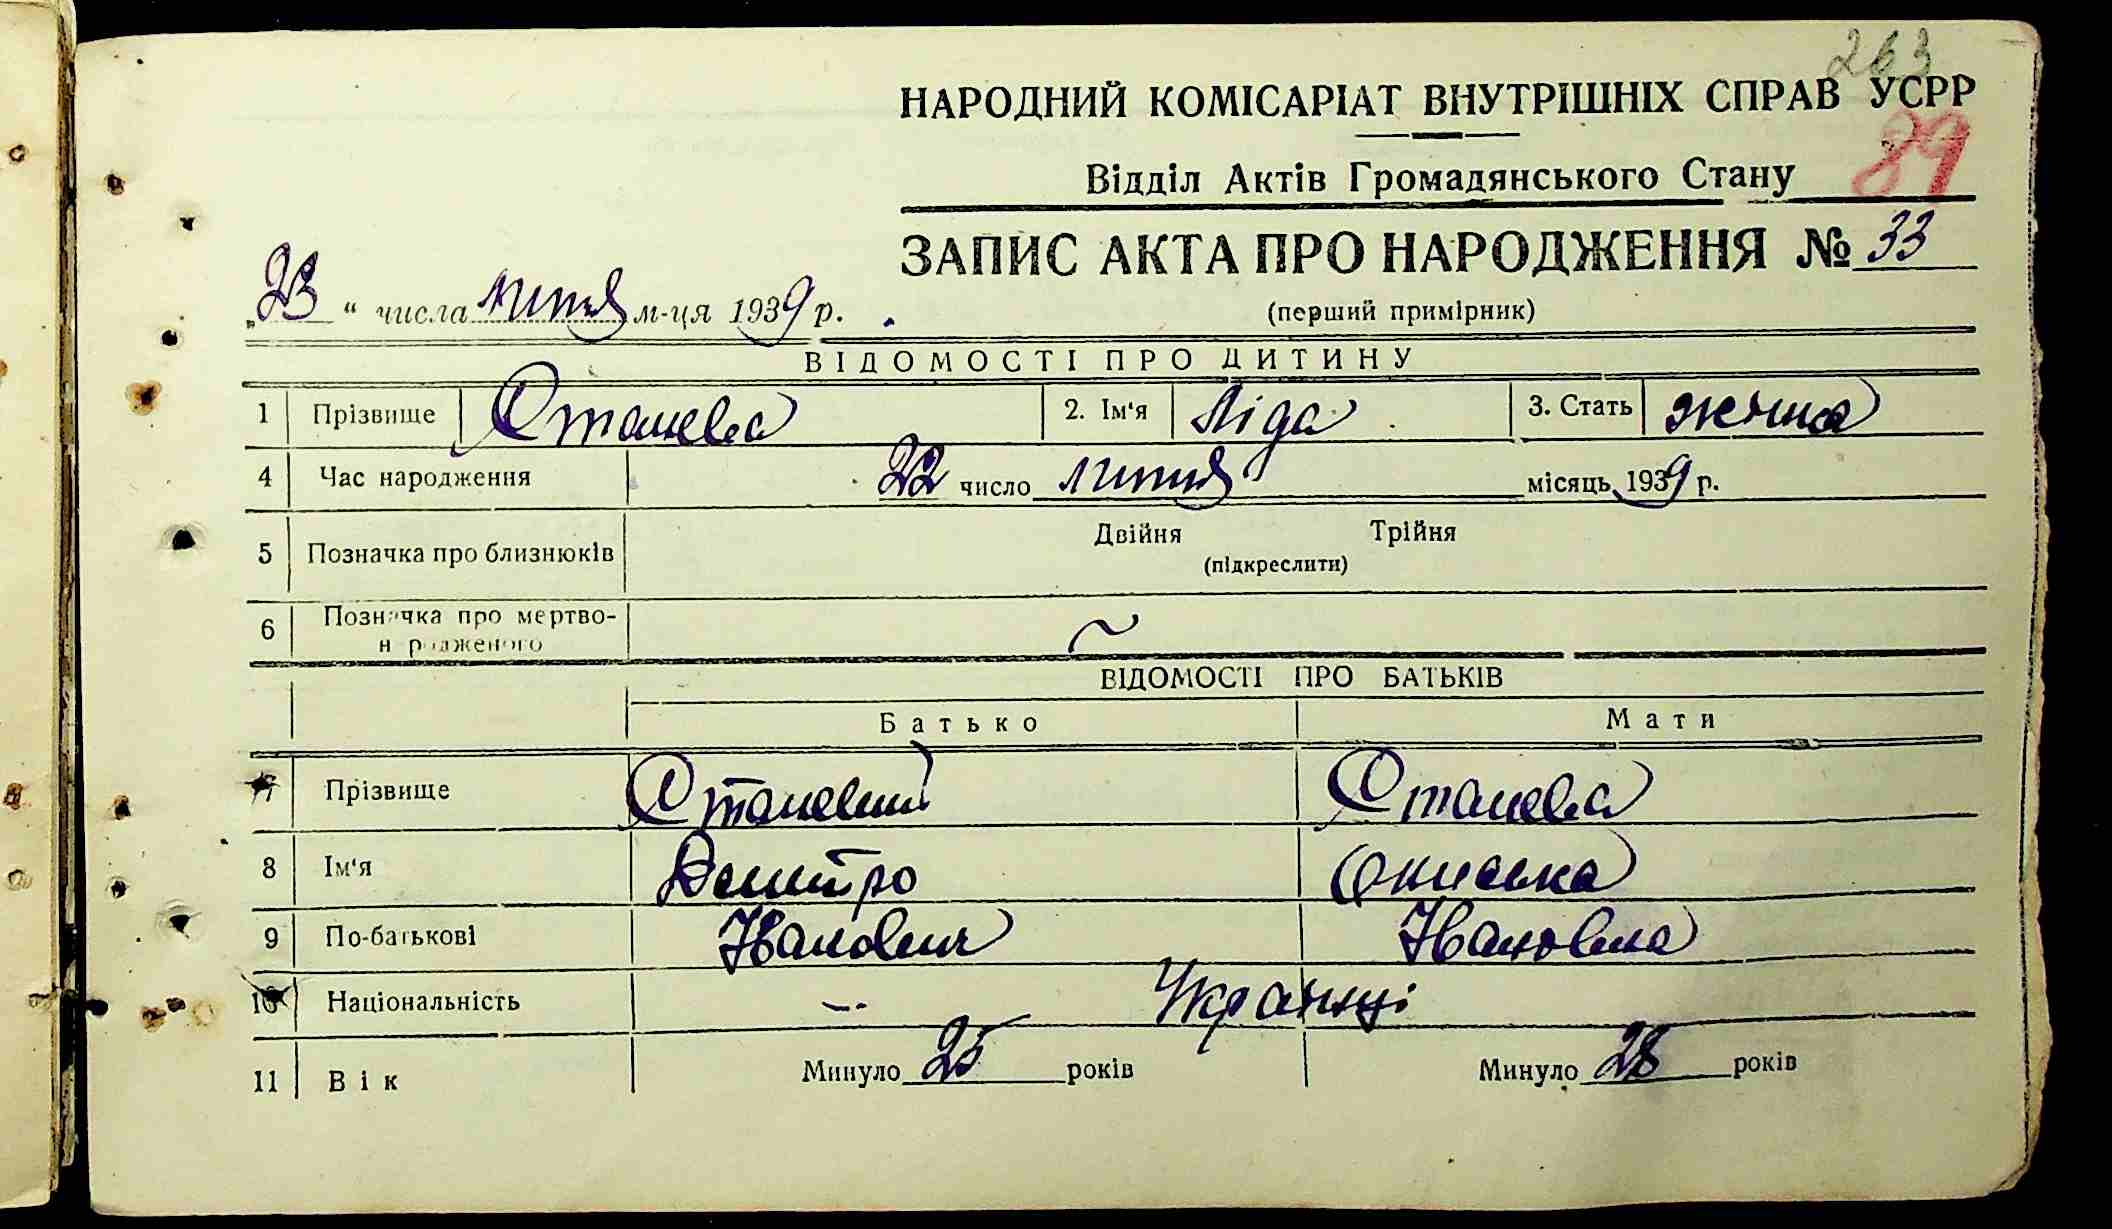 263
НАРОДНИЙ КОМІСАРІАТ ВНУТРІШНІХ СПРАВ УСРР
89
Відділ Актів Громадянського Стану
ЗАПИС АКТА ПРО НАРОДЖЕННЯ № 33
„23“ числа липня м-ця 1939 р.
(перший примірник)
ВІДОМОСТІ ПРО ДИТИНУ
1 Прізвище Станева 2. Ім'я Ліда 3. Стать жіноча
4 Час народження 22 число липня місяць 1939 р.
5 Позначка про близнюків Двійня Трійня
(підкреслити)
6 Позначка про мертво-
народженого ~
ВІДОМОСТІ ПРО БАТЬКІВ
Батько Мати
7 Прізвище Станевий Станева
8 Ім'я Дмитро
9 По-батькові Іванович Івановна
10 Національність —·· Українці
11 Вік Минуло 25 років Минуло 28 років